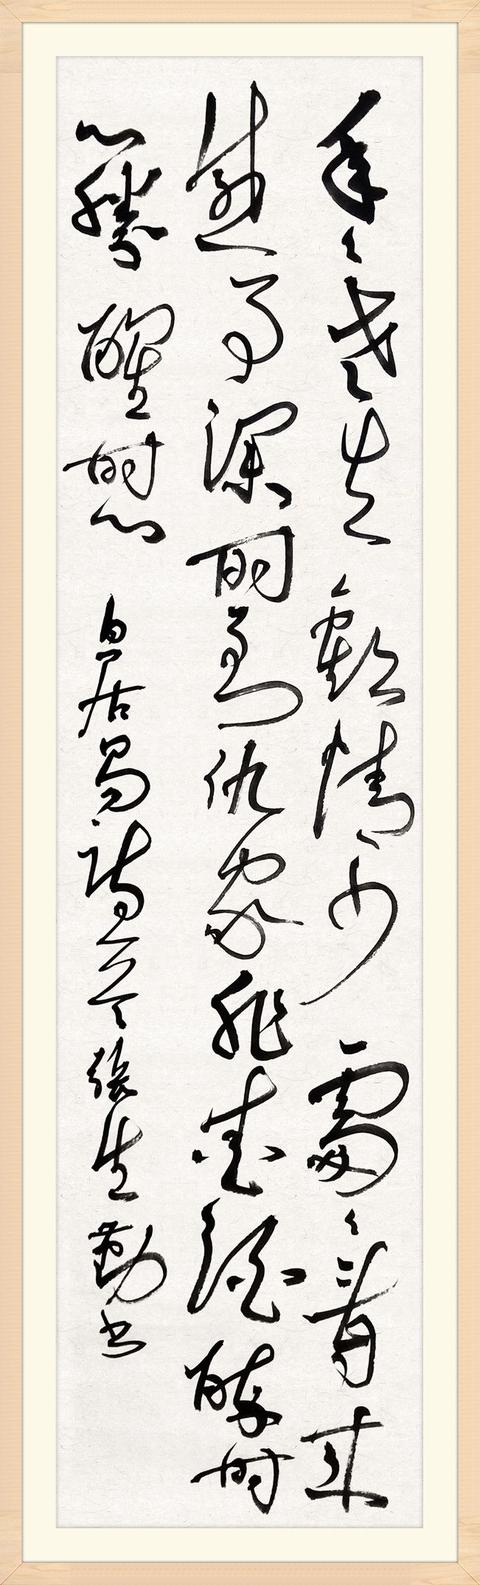 年々老去歡情少處々春來
感事深时到仇家非愛酒醉时
心勝醒时心 白居易詩一首 張生勤书